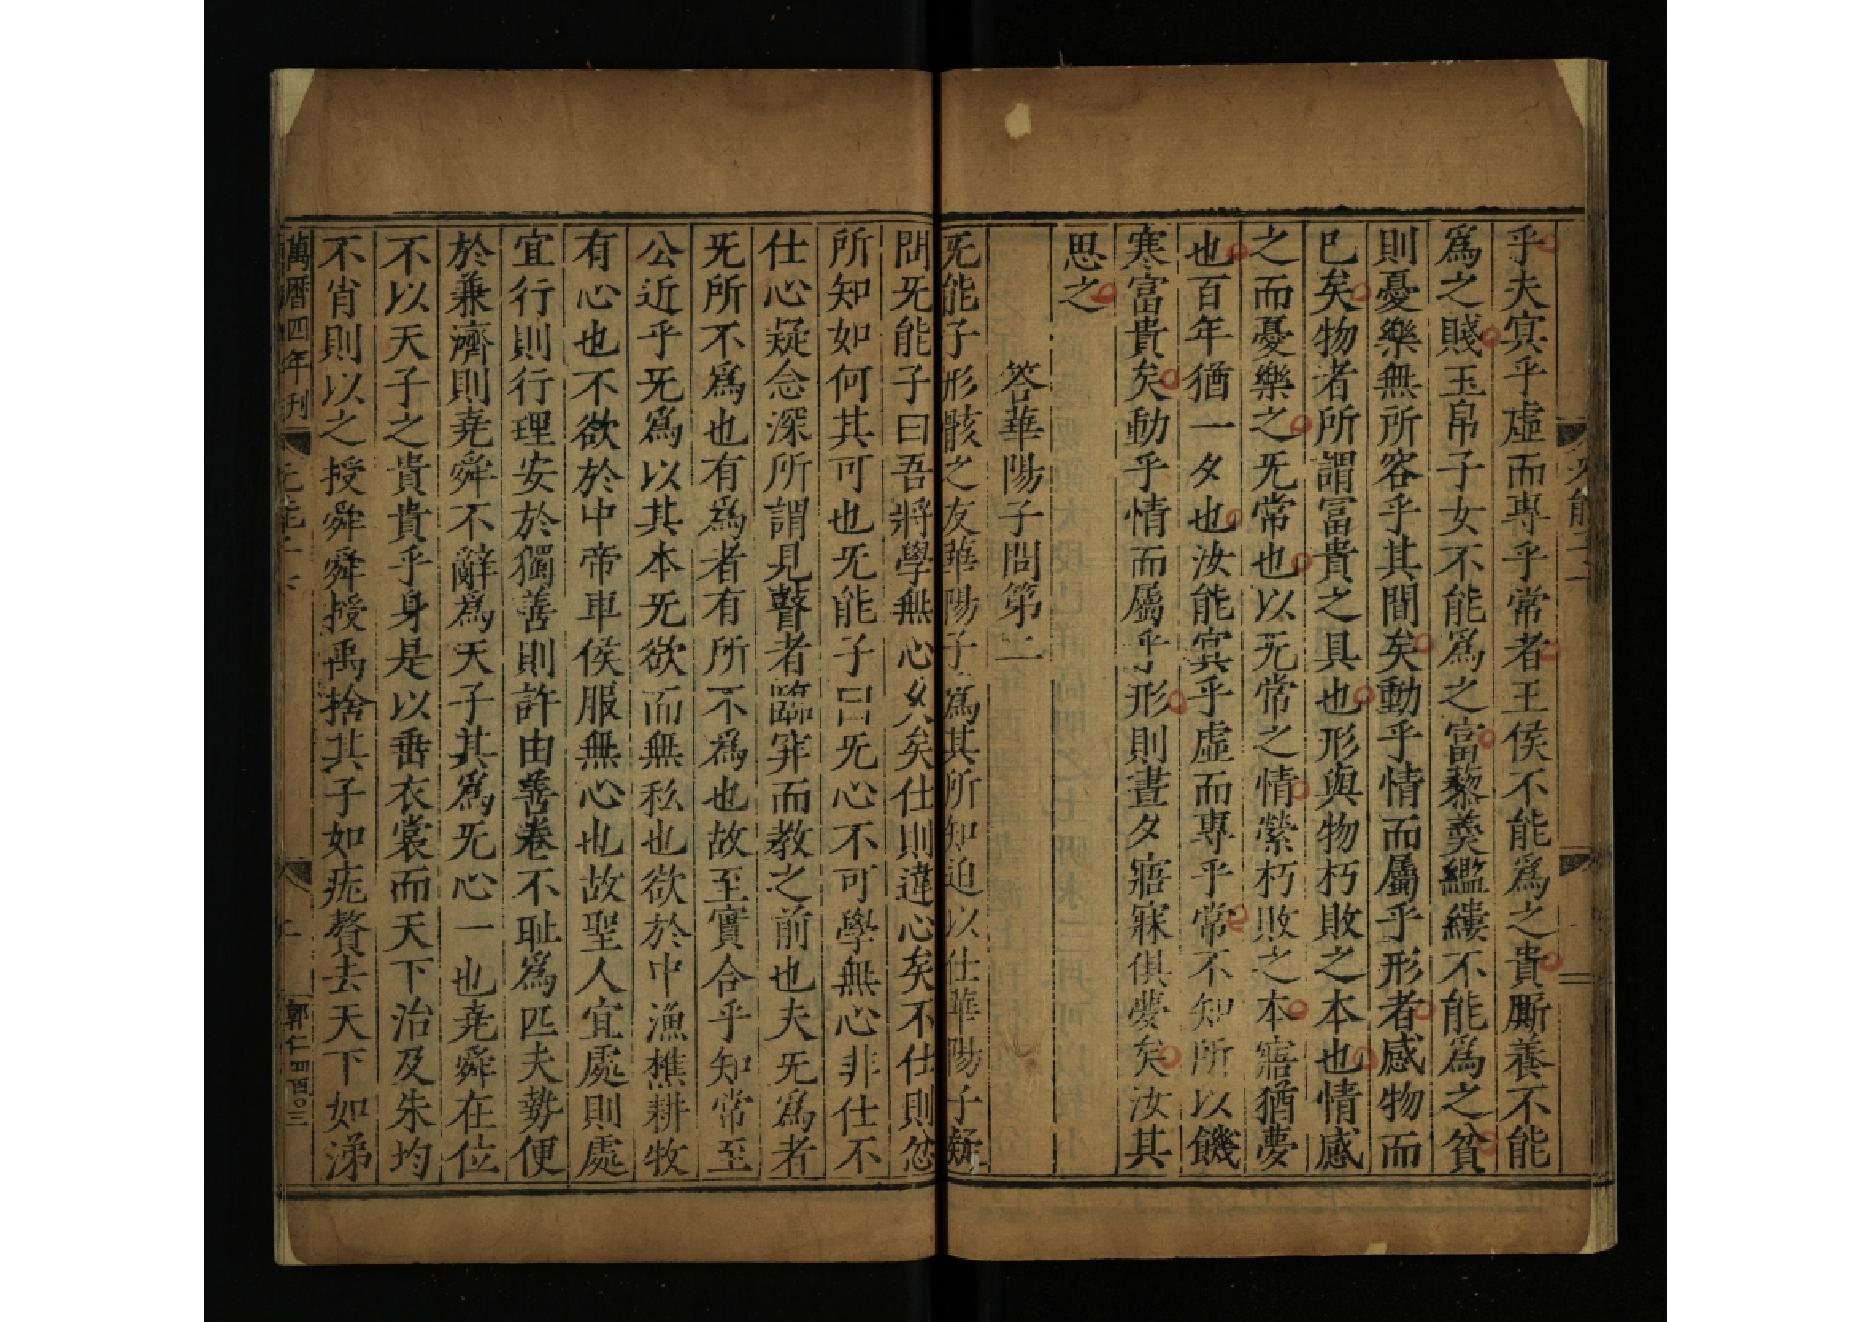 乎夫㝠乎虛而專乎常者王侯不能爲之貴厮養不能
爲之賤玉帛子女不能爲之富藜羹繿縷不能爲之貧
則憂樂無所容乎其間矣動乎情而屬乎形者感物而
已矣物者所謂富貴之具也形與物朽敗之本也情感
之而憂樂之旡常也以旡常之情縈朽敗之本寤猶夢
也百年猶一夕也汝能㝠乎虛而專乎常不知所以饑
寒富貴矣動乎情而屬乎形則晝夕寤寐俱夢矣汝其
思之
答華陽子問第二
旡能子形骸之友華陽子爲其所知迫以仕華陽子疑
問旡能子曰吾將學無心久矣仕則違心矣不仕則忿
所知如何其可也旡能子曰旡心不可學無心非仕不
仕心疑念深所謂見瞽者臨穽而教之前也夫旡爲者
旡所不爲也有爲者有所不爲也故至實合乎知常至
公近乎旡爲以其本旡欲而無私也欲於中漁樵耕牧
有心也不欲於中帝車侯服無心也故聖人宜處則處
宜行則行理安於獨善則許由善卷不耻爲匹夫勢便
於兼濟則堯舜不辭爲天子其爲旡心一也堯舜在位
不以天子之貴貴乎身是以垂衣裳而天下治及朱均
不肖則以之授舜舜授禹捨其子如疣贅去天下如涕
萬曆四年刊
二
郭仁四百○三